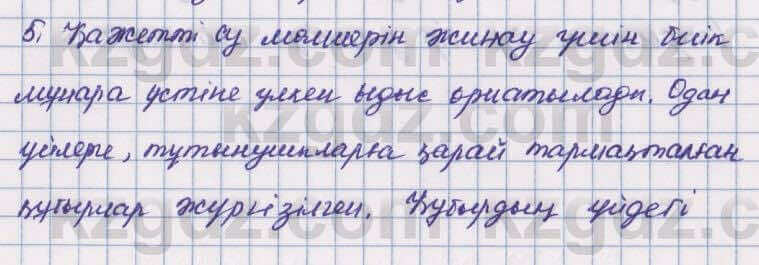 5. Қажетті су мөлшерін жинау үшін биік
мұнара үстіне үлкен ыдыс орнатылады. Одан
үйлерге, тұтынушыларға қарай тармақталған
құбырлар жүргізілген. Құбырдың үйдегі
kzgdz.com